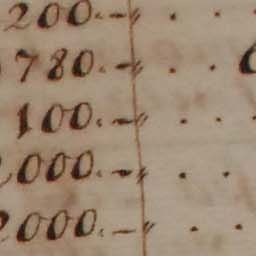 200.-//. .
780.-//. .
100.-//. .
000.-//. .
000.-//. .